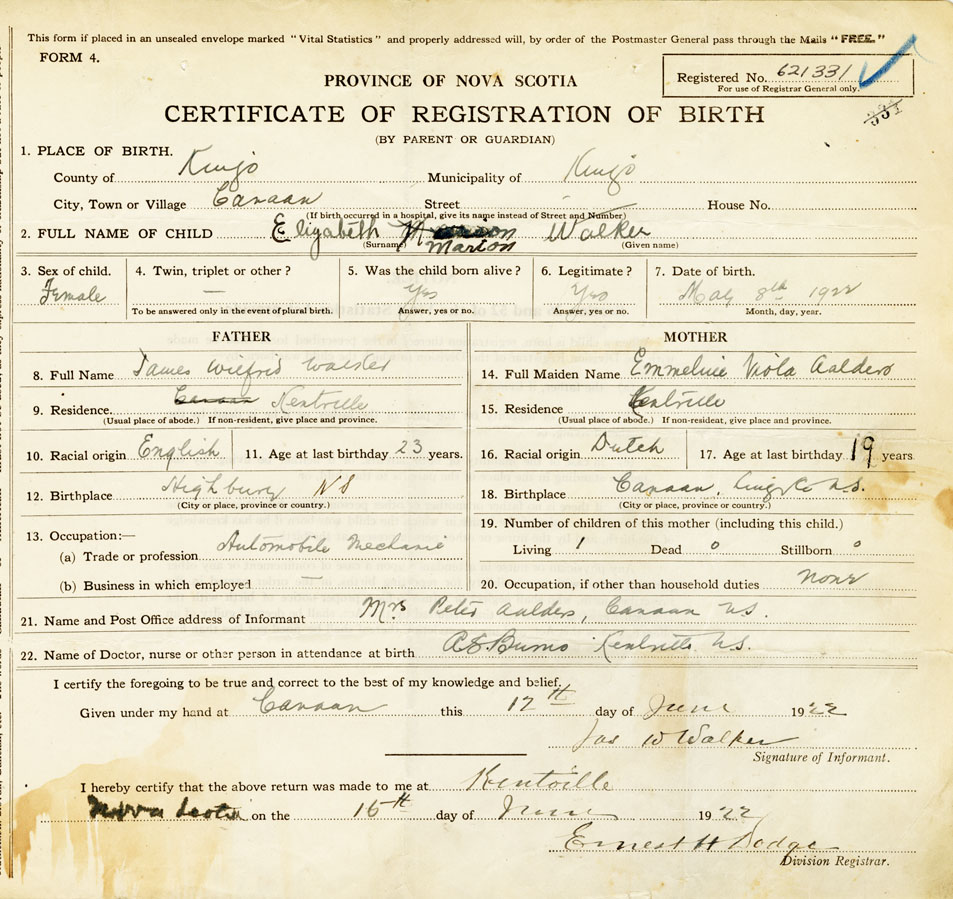 This form if placed in an unsealed envelope marked "Vital Statistics" and properly addressed will, by order of the Postmaster General pass through the Mails "FREE."
FORM 4.
Registered No. 621331
For use of Registrar General only.
331
PROVINCE OF NOVA SCOTIA
CERTIFICATE OF REGISTRATION OF BIRTH
(BY PARENT OR GUARDIAN)
1. PLACE OF BIRTH.
County of Kings Municipality of Kings
City, Town or Village Canaan Street House No.
(If birth occurred in a hospital, give its name instead of Street and Number)
2. FULL NAME OF CHILD Elizabeth Marion Walker
(Surname) (Given name)
3. Sex of child. 4. Twin, triplet or other? 5. Was the child born alive? 6. Legitimate? 7. Date of birth.
Female — Yes Yes May 8th 1922
To be answered only in the event of plural birth. Answer, yes or no. Answer, yes or no. Month, day, year.
FATHER MOTHER
8. Full Name James Wilfrid Walker 14. Full Maiden Name Emmeline Viola Aalders
9. Residence. Canaan Kentville 15. Residence Kentville
(Usual place of abode.) If non-resident, give place and province. (Usual place of abode.) If non-resident, give place and province.
10. Racial origin English 11. Age at last birthday 23 years. 16. Racial origin Dutch 17. Age at last birthday 19 years
12. Birthplace Highbury NS 18. Birthplace Canaan, Kings Co N.S.
(City or place, province or country.) (City or place, province or country.)
13. Occupation:— 19. Number of children of this mother (including this child.)
(a) Trade or profession Automobile Mechanic Living 1 Dead 0 Stillborn 0
(b) Business in which employed — 20. Occupation, if other than household duties none
21. Name and Post Office address of Informant Mrs Peter Aalders, Canaan NS.
22. Name of Doctor, nurse or other person in attendance at birth Burns Kentville N.S.
I certify the foregoing to be true and correct to the best of my knowledge and belief.
Given under my hand at Canaan this 12th day of June 1922
Jas W Walker
Signature of Informant.
I hereby certify that the above return was made to me at Kentville
Nova Scotia on the 16th day of June 1922
Ernest H Dodge
Division Registrar.